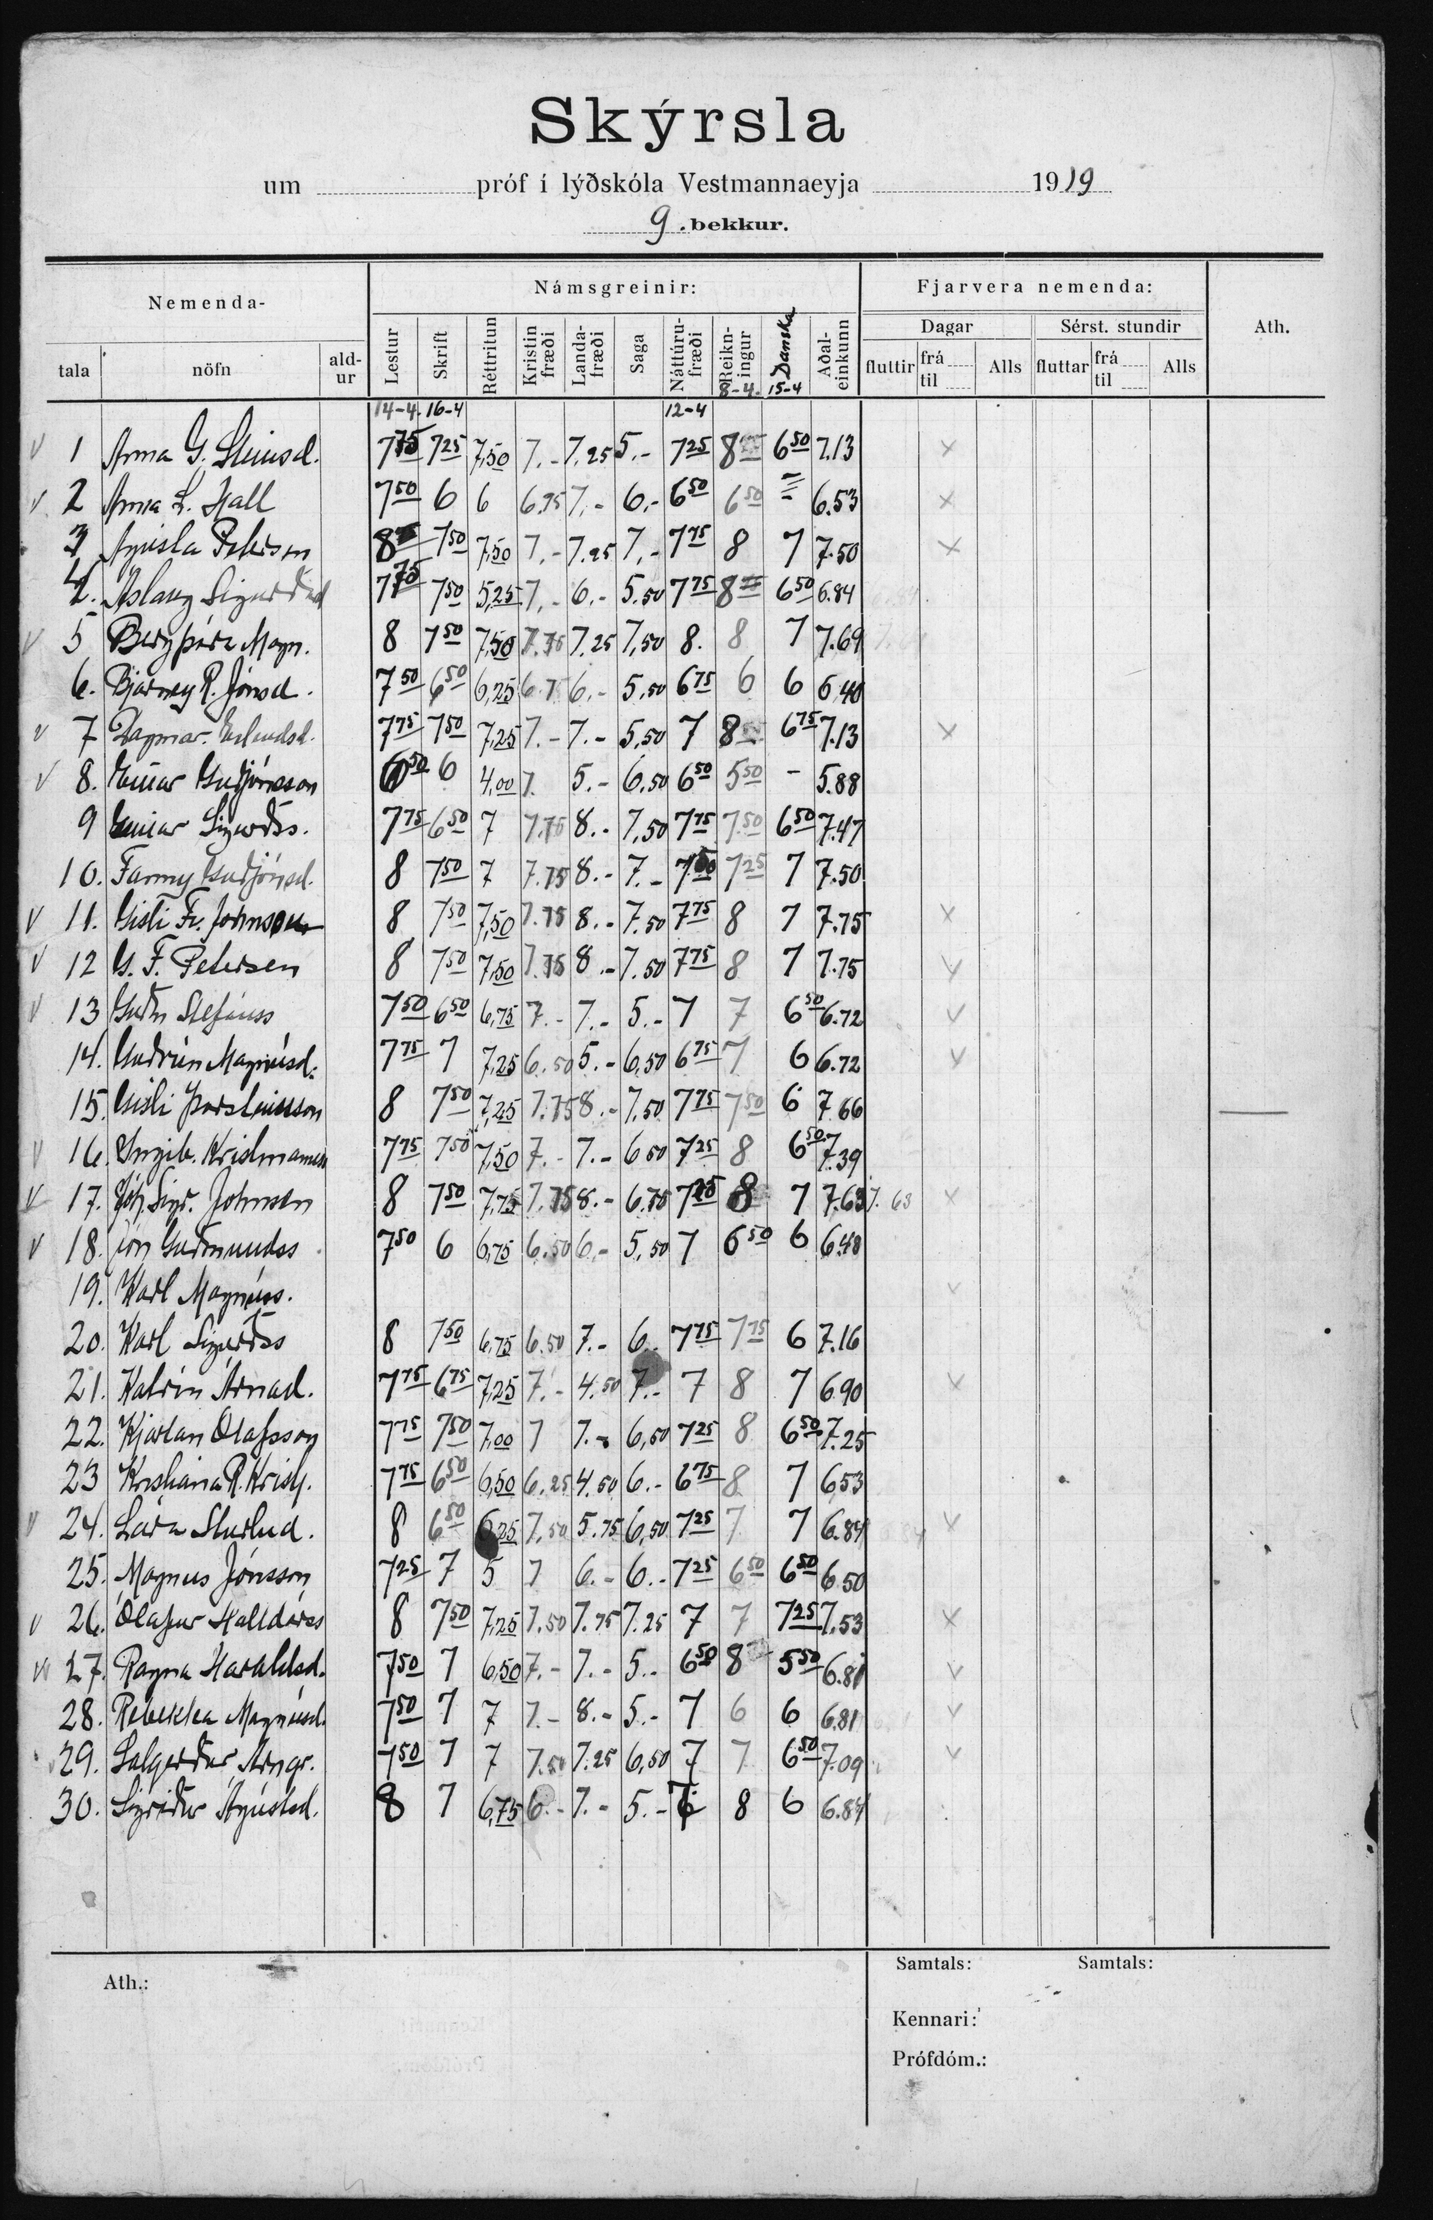 Skýrsla
um próf í lýðskóla Vestmannaeyja 1919
9. bekkur.
Nemenda- Námsgreinir: Fjarvera nemenda: Ath.
tala nöfn ald-ur Lestur Skrift Réttritun Kristin fræði Landa-fræði Saga Náttúru-fræði Reikn-ingur Danska Aðal-einkunn Dagar Sérst. stundir
fluttir frá til Alls fluttar frá til Alls
14-4 16-4 12-4 8-4 15-4
1 Anna G. Steinsd. 7 75 7 25 7,50 7.- 7.25 5.- 7 25 8 6 50 7.13
2 Anna L. Hall 7 50 6 6 6.75 7.- 6.- 6 50 6 50 = 6.53
3 Ágústa Petersen 8 7 50 7,50 7.- 7.25 7.- 7 75 8 7 7.50
4. Áslaug Sigurðard 7 75 7 50 5,25 7.- 6.- 5.50 7 75 8 6 50 6.84
5 Bergþóra Magn. 8 7 50 7,50 7.75 7.25 7,50 8. 8 7 7.69
6. Bjarney R. Jónsd. 7 50 6 50 6,25 6.75 6.- 5,50 6 75 6 6 6.40
7 Dagmar Erlendsd. 7 75 7 50 7,25 7.- 7.- 5,50 7 8 6 75 7.13
8. Einar Guðjónsson 6 50 6 4,00 7. 5.- 6,50 6 50 5 50 - 5.88
9 Einar Sigurðss. 7 75 6 50 7 7.75 8.- 7,50 7 75 7 50 6 50 7.47
10. Fanny Guðjónsd. 8 7 50 7 7.75 8.- 7.- 7 50 7 25 7 7.50
11. Gísli Fr. Johnsen 8 7 50 7,50 7.75 8.- 7.50 7 75 8 7 7.75
12 G. F. Petersen 8 7 50 7,50 7.75 8.- 7.50 7 75 8 7 7.75
13 Guðn Stefánss 7 50 6 50 6,75 7.- 7.- 5.- 7 7 6 50 6.72
14. Guðrún Magnúsd. 7 75 7 7,25 6.50 5.- 6,50 6 75 7 6 6.72
15. Gísli Þorsteinsson 8 7 50 7,25 7.75 8.- 7.50 7 75 7 50 6 7.66
16. Ingib. Kristmannsd 7 75 7 50 7,50 7.- 7.- 6 50 7 25 8 6 50 7.39
17. Jóh. Sigr. Johnsen 8 7 50 7,75 7.75 8.- 6.75 7 25 8 7 7.63 7.63
18. Jón Guðmundss 7 50 6 6,75 6.50 6.- 5,50 7 6 50 6 6.48
19. Karl Magnúss.
20. Karl Sigurðss 8 7 50 6,75 6.50 7.- 6.- 7 75 7 75 6 7.16
21. Katrín Árnad. 7 75 6 75 7,25 7.- 4.50 7.- 7 8 7 6.90
22. Kjartan Ólafsson 7 75 7 50 7,00 7 7.- 6,50 7 25 8 6 50 7.25
23 Kristjana R. Kristj. 7 75 6 50 6,50 6.25 4.50 6.- 6 75 8 7 6.53
24. Lára Sturlud. 8 6 50 6,25 7,50 5.75 6,50 7 25 7 7 6.84
25. Magnus Jónsson 7 25 7 5 7 6.- 6.- 7 25 6 50 6 50 6.50
26. Ólafur Halldórss 8 7 50 7,25 7.50 7.75 7.25 7 7 7 25 7.53
27. Ragna Haraldsd. 7 50 7 6,50 7.- 7.- 5.- 6 50 8 5 50 6.81
28. Rebekka Magnúsd. 7 50 7 7 7.- 8.- 5.- 7 6 6 6.81
29. Salgerður Arngr. 7 50 7 7 7.50 7.25 6,50 7 7 6 50 7.09
30. Sigríður Ágústsd. 8 7 6,75 6.- 7.- 5.- 8 6 6.84
Ath.:
Samtals: Samtals:
Kennari:
Prófdóm.: